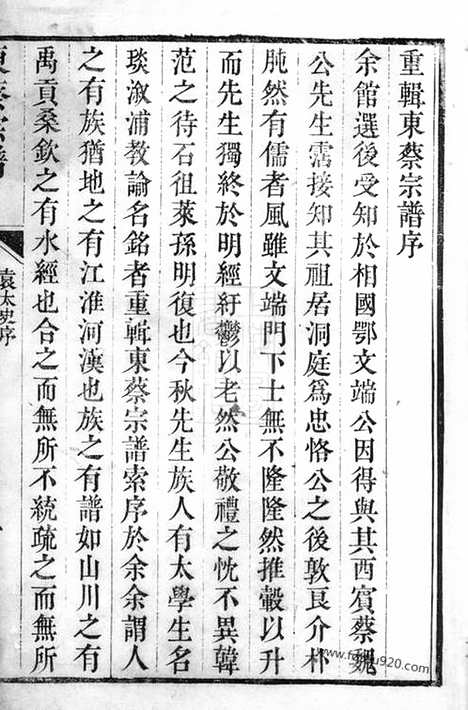 重輯東蔡宗譜序
余館選後受知於相國鄂文端公因得與其西賓蔡魏
公先生霑接知其祖居洞庭爲忠恪公之後敦良介朴
肫然有儒者風雖文端門下士無不隆隆然推轂以升
而先生獨終於明經紆鬱以老然公敬禮之忱不異韓
范之待石徂萊孫明復也今秋先生族人有太學生名
琰溆浦教諭名銘者重輯東蔡宗譜索序於余余謂人
之有族猶地之有江淮河漢也族之有譜如山川之有
禹貢桑欽之有水經也合之而無所不統疏之而無所
袁太史序
www.fojiu920.com